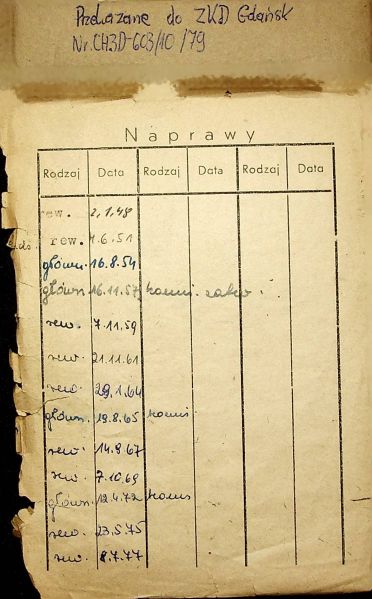 Przekazane do ZKD Gdańsk
Nr. CH3D-603/10/79
Naprawy
Rodzaj Data Rodzaj Data Rodzaj Data
rew. 2.1.48
rew. 1.6.51
główn. 16.8.54
główn. 16.11.57
rew. 7.11.59
rew. 21.11.61
rew. 29.1.64
główn. 19.8.65
rew. 14.9.67
rew. 7.10.69
główn. 12.4.72
rew. 23.5.75
rew. 8.7.77